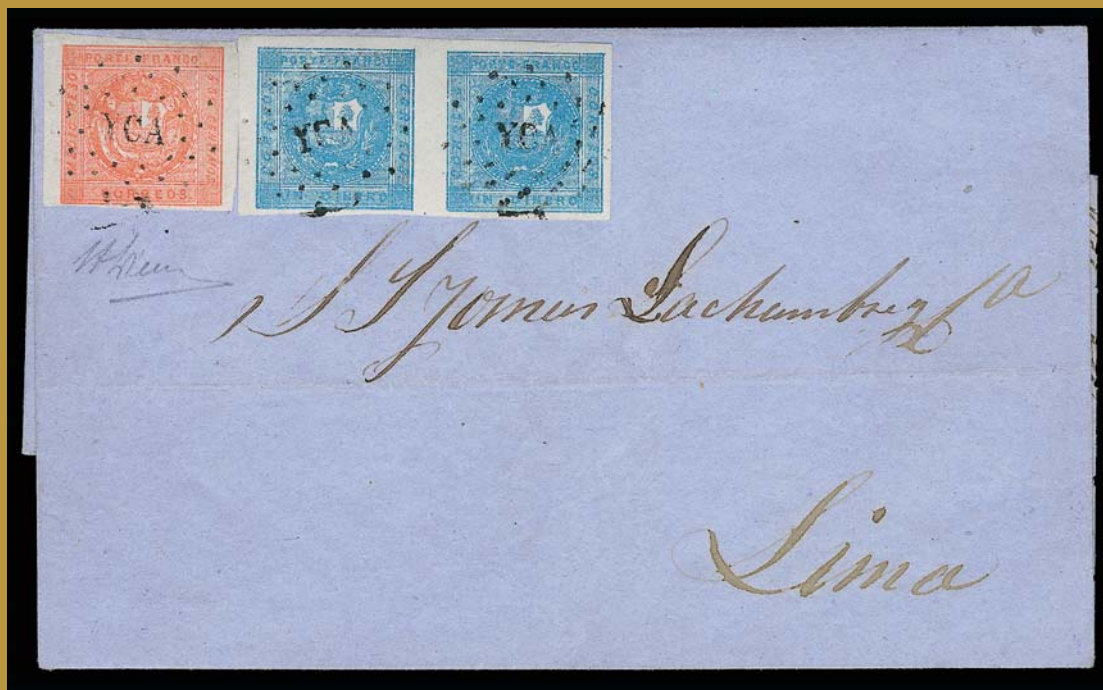 PORTE FRANCO
YCA
CORREOS
PORTE FRANCO
YCA
UN DINERO
PORTE FRANCO
YCA
UN DINERO
S S Tomas Lachambre y Ca
Lima